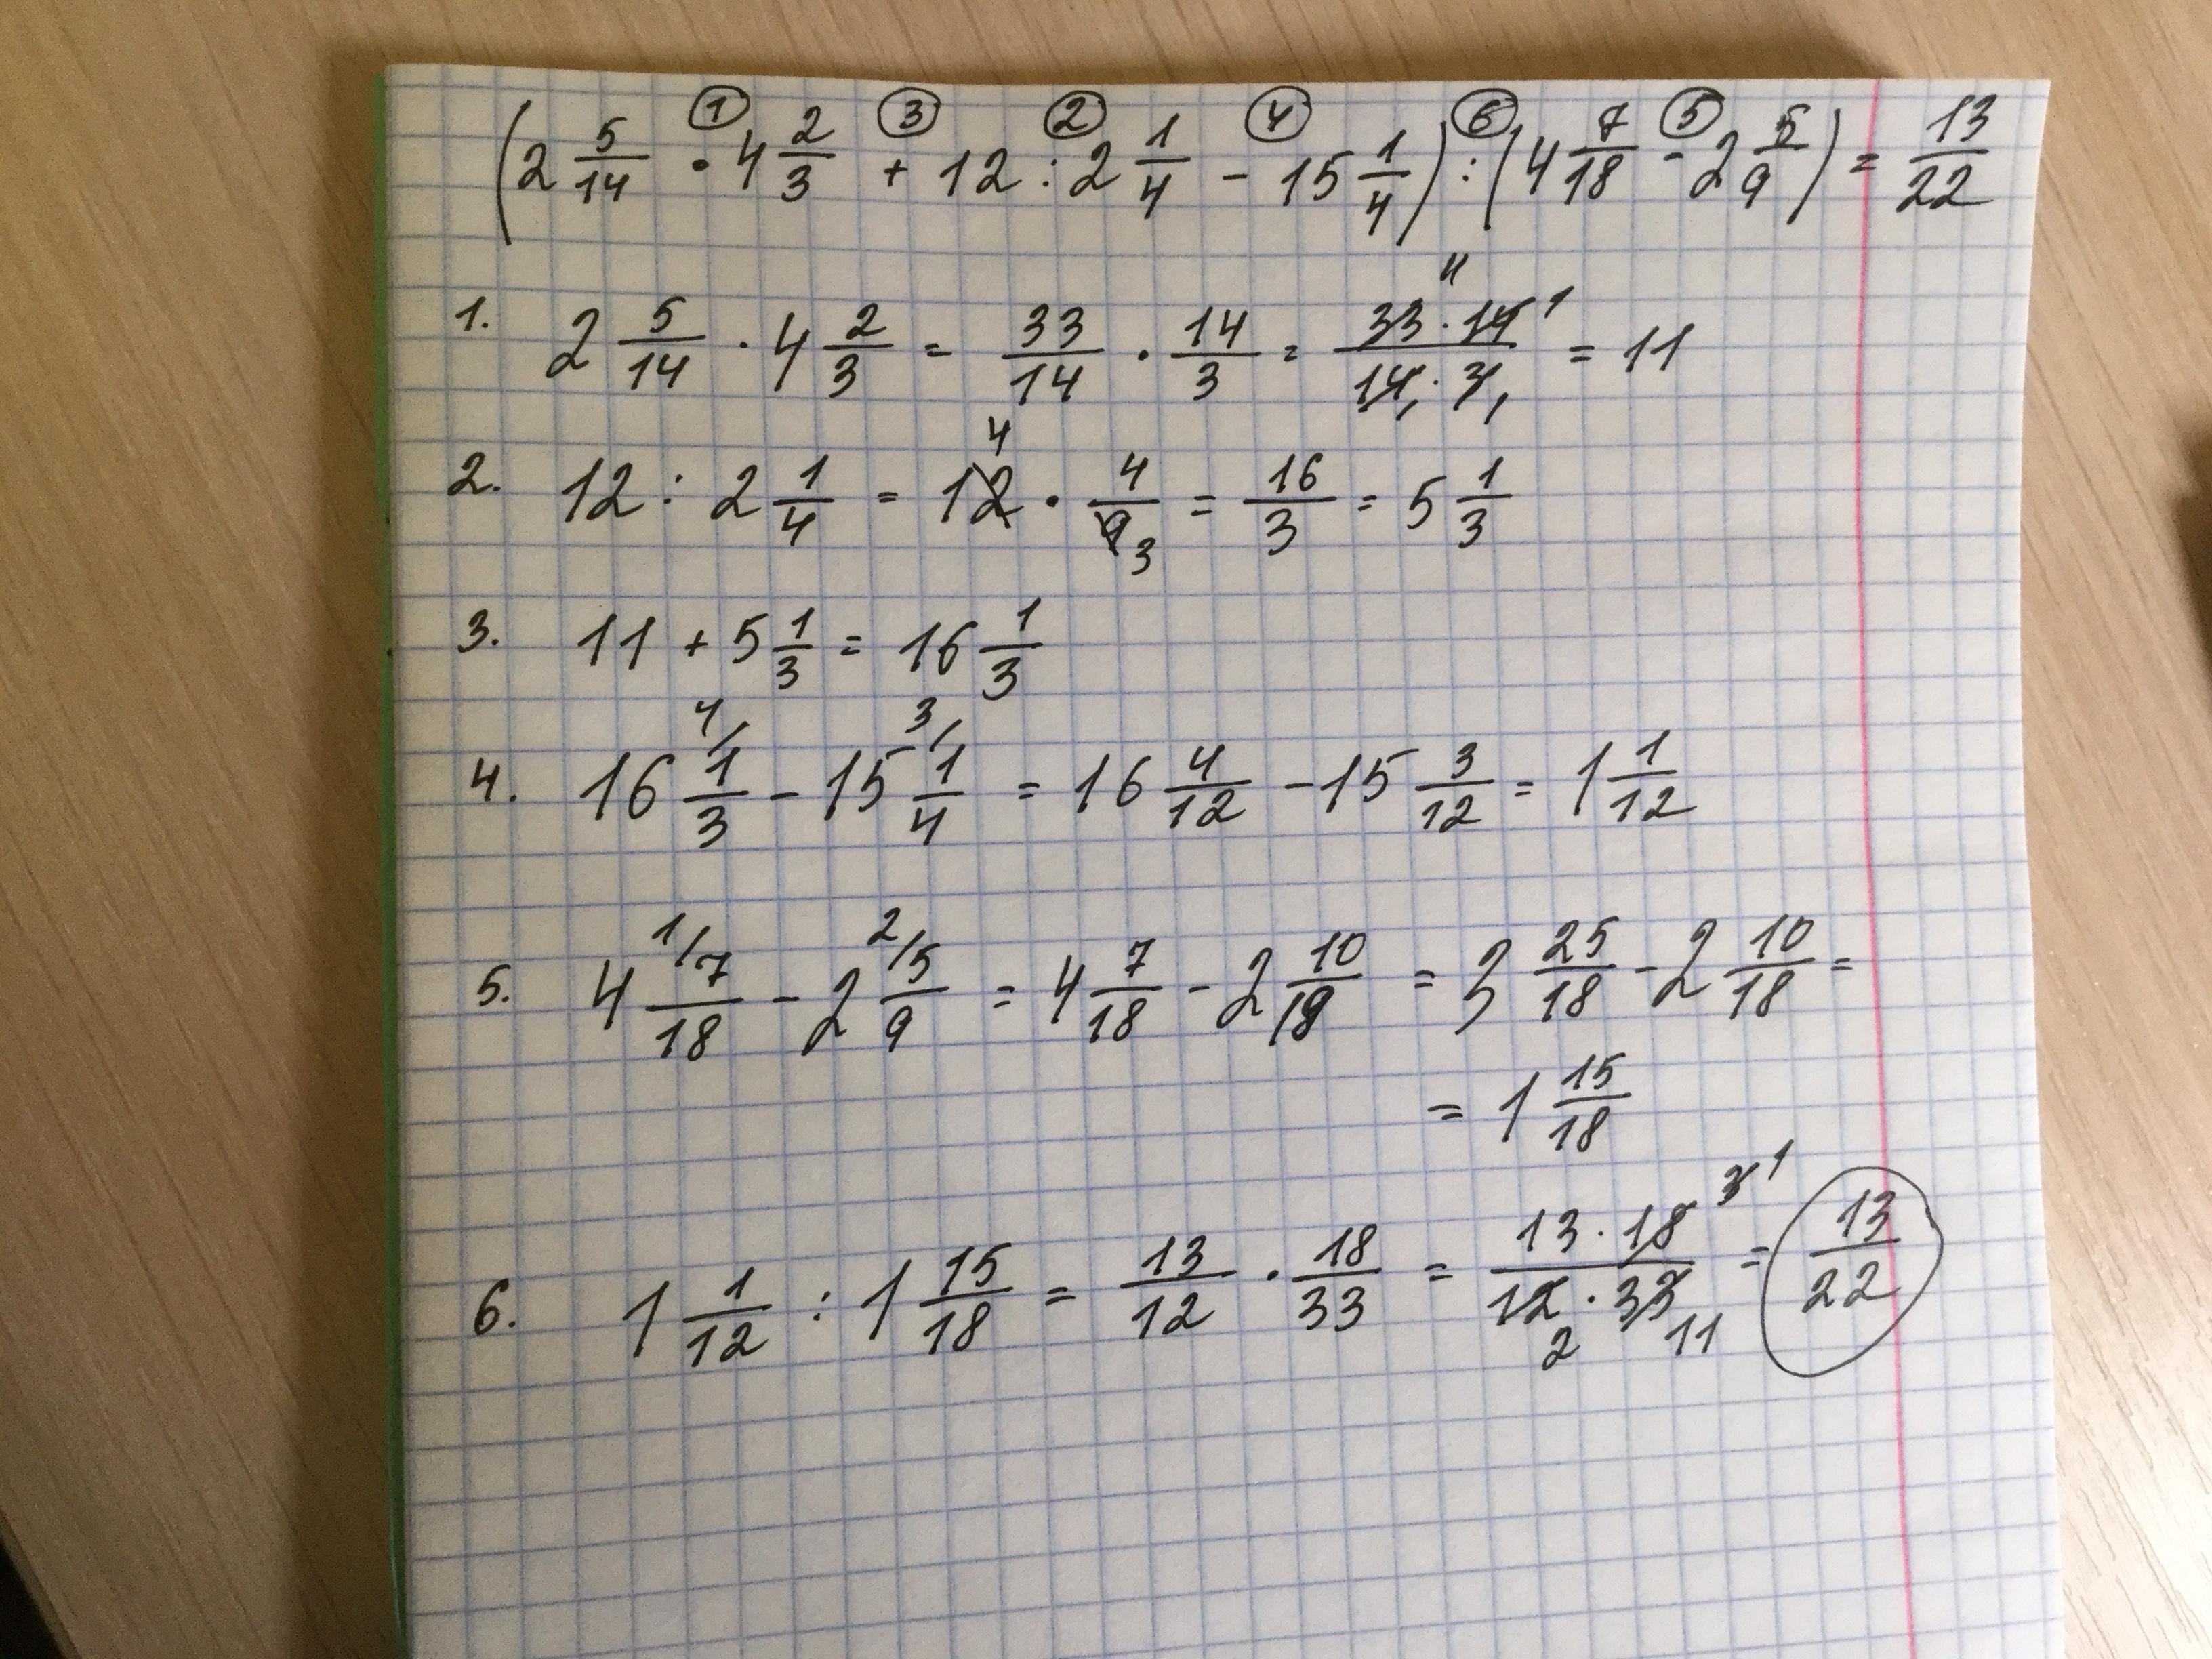 ① ③ ② ④ ⑥ ⑤
(2 5/14 · 4 2/3 + 12 : 2 1/4 - 15 1/4) : (4 7/18 - 2 5/9) = 13/22
1. 2 5/14 · 4 2/3 = 33/14 · 14/3 = 33 11 · 14 1/14 1 · 3 1 = 11
2. 12 : 2 1/4 = 12 4 · 4/9 3 = 16/3 = 5 1/3
3. 11 + 5 1/3 = 16 1/3
4. 16 4/ 1/3 - 15 3/ 1/4 = 16 4/12 - 15 3/12 = 1 1/12
5. 4 1/ 7/18 - 2 2/ 5/9 = 4 7/18 - 2 10/18 = 3 25/18 - 2 10/18 =
= 1 15/18
6. 1 1/12 : 1 15/18 = 13/12 · 18/33 = 13 · 18 3 1/12 2 · 33 11 = 13/22